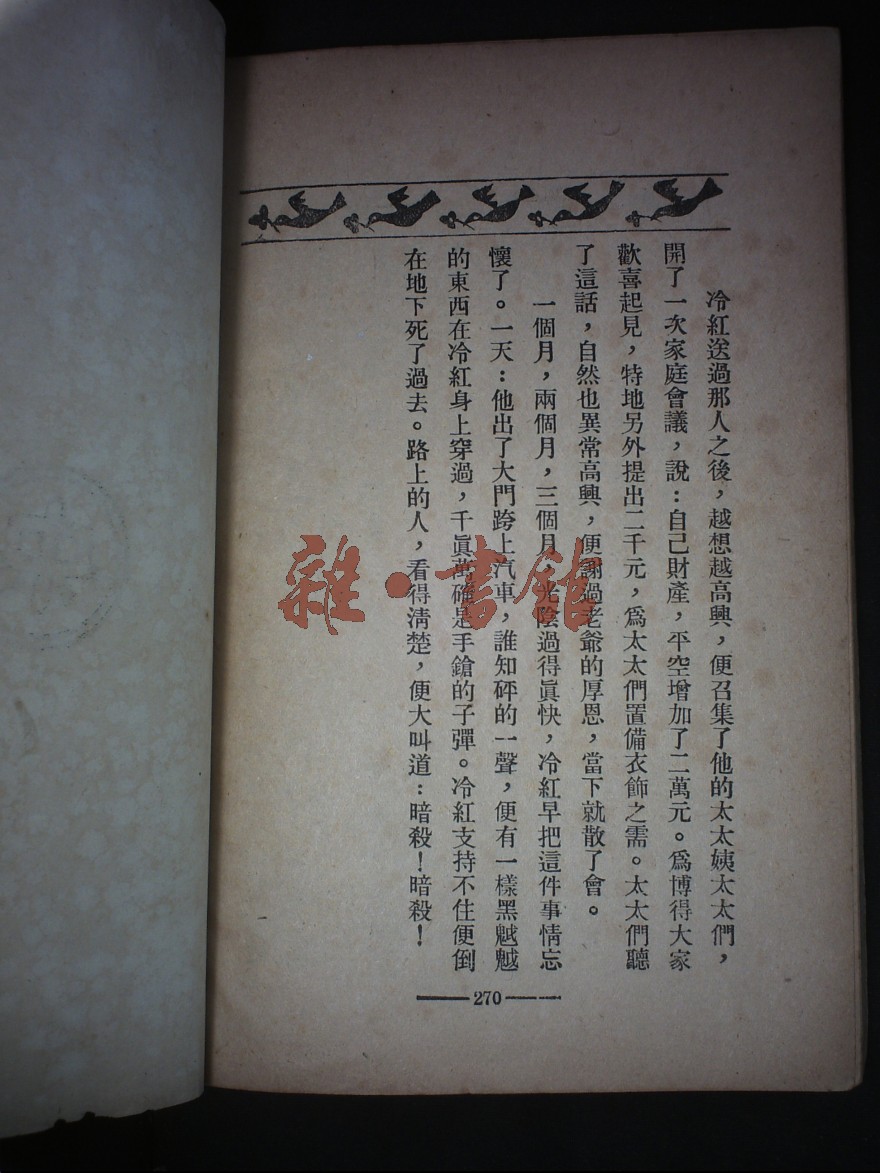 冷紅送過那人之後，越想越高興，便召集了他的太太姨太太們，
開了一次家庭會議，說：自己財產，平空增加了二萬元。爲博得大家
歡喜起見，特地另外提出二千元，爲太太們置備衣飾之需。太太們聽
了這話，自然也異常高興，便謝過老爺的厚恩，當下就散了會。
一個月，兩個月，三個月，光陰過得眞快，冷紅早把這件事情忘
懷了。一天：他出了大門跨上汽車，誰知砰的一聲，便有一樣黑魆魆
的東西在冷紅身上穿過，千眞萬確是手鎗的子彈。冷紅支持不住便倒
在地下死了過去。路上的人，看得淸楚，便大叫道：暗殺！暗殺！
270
雜·書館